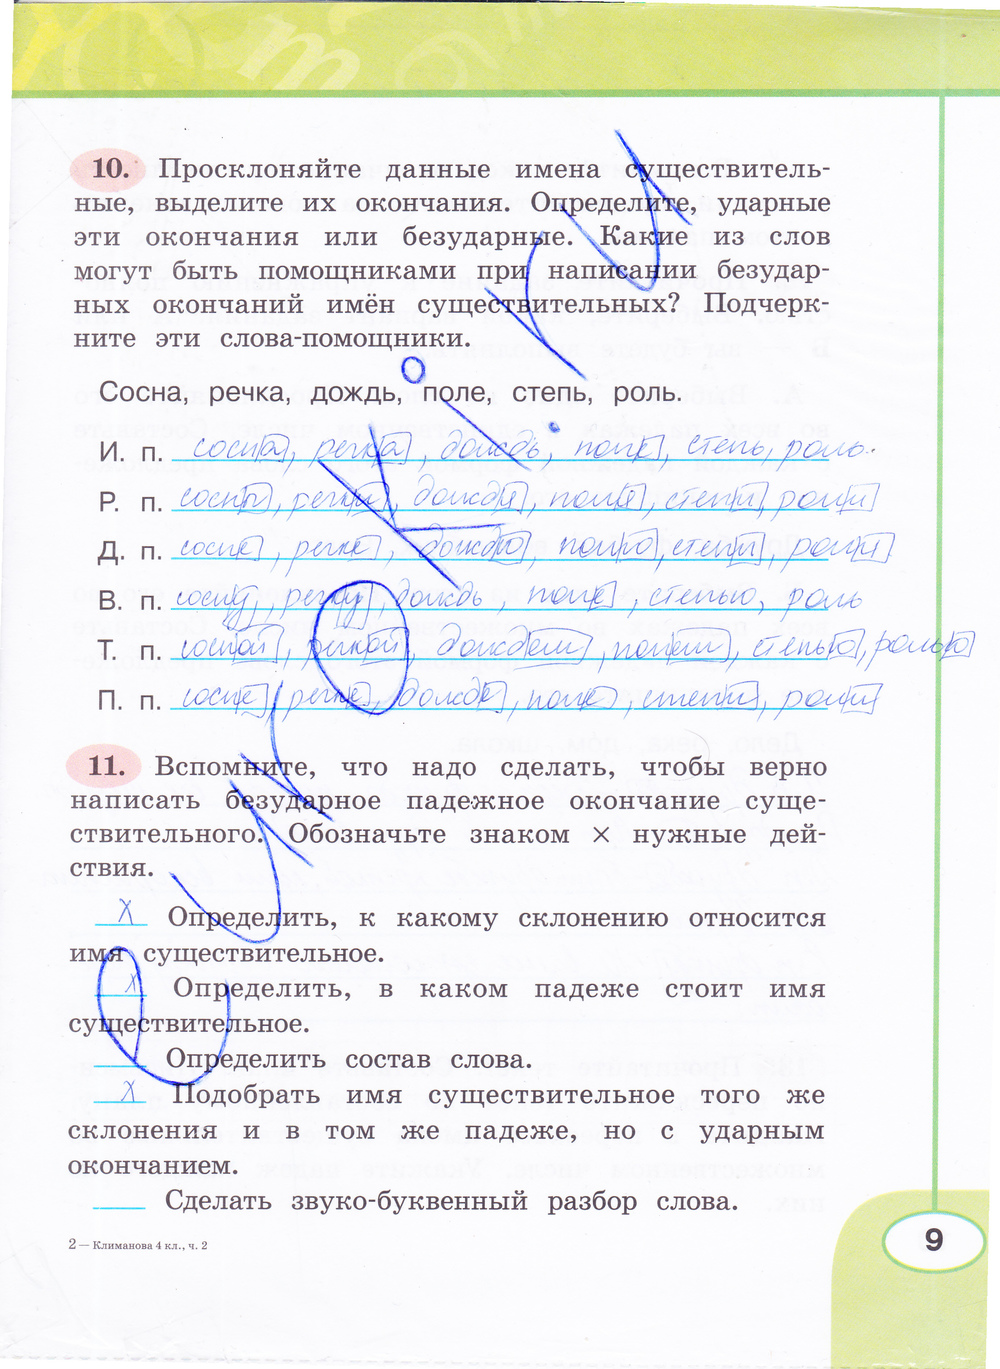 10. Просклоняйте данные имена существитель-
ные, выделите их окончания. Определите, ударные
эти окончания или безударные. Какие из слов
могут быть помощниками при написании безудар-
ных окончаний имён существительных? Подчерк-
ните эти слова-помощники.
Сосна, речка, дождь, поле, степь, роль.
И. п. сосна, речка, дождь, поле, степь, роль.
Р. п. сосны, речки, дождя, поля, степи, роли
Д. п. сосне, речке, дождю, полю, степи, роли
В. п. сосну, речку, дождь, поле, степью, роль
Т. п. сосной, речкой, дождем, полем, степью, ролью
П. п. сосне, речке, дожде, поле, степи, роли
11. Вспомните, что надо сделать, чтобы верно
написать безударное падежное окончание суще-
ствительного. Обозначьте знаком × нужные дей-
ствия.
X Определить, к какому склонению относится
имя существительное.
X Определить, в каком падеже стоит имя
существительное.
Определить состав слова.
X Подобрать имя существительное того же
склонения и в том же падеже, но с ударным
окончанием.
Сделать звуко-буквенный разбор слова.
2 — Климанова 4 кл., ч. 2
9